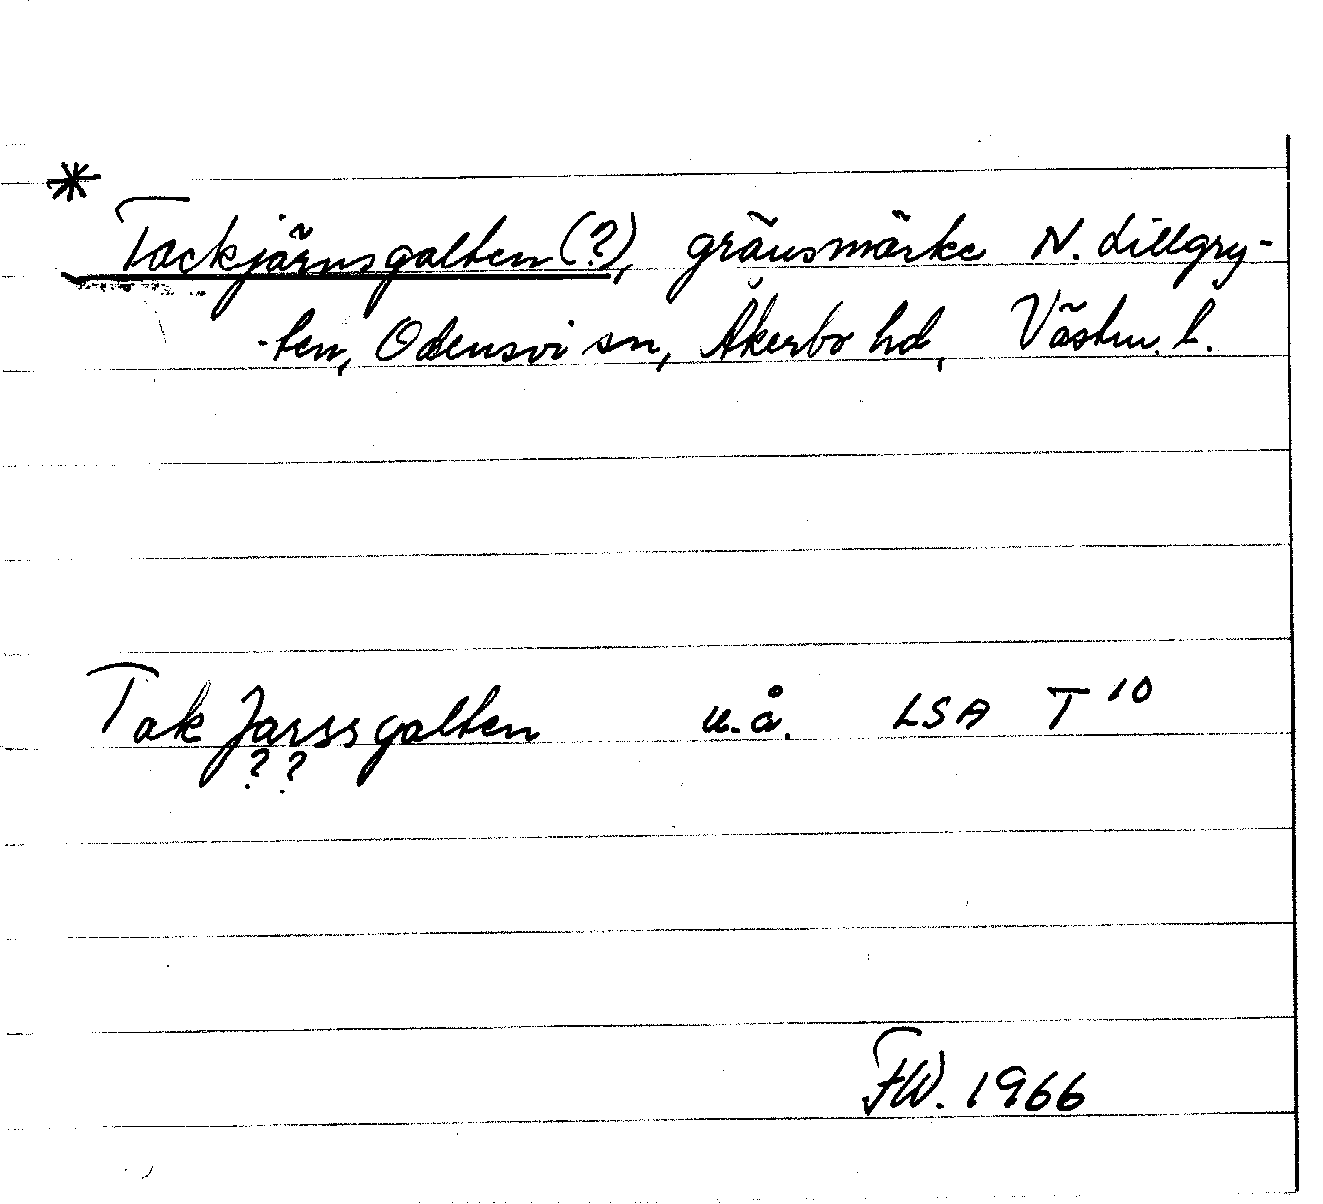 * Tackjärnsgalten (?), gränsmärke N. Lillgry-
-ten, Odensvi sn, Åkerbo hd, Västm. l.
Tak Jarssgalten u.å. LSA T 10
? ?
FW. 1966